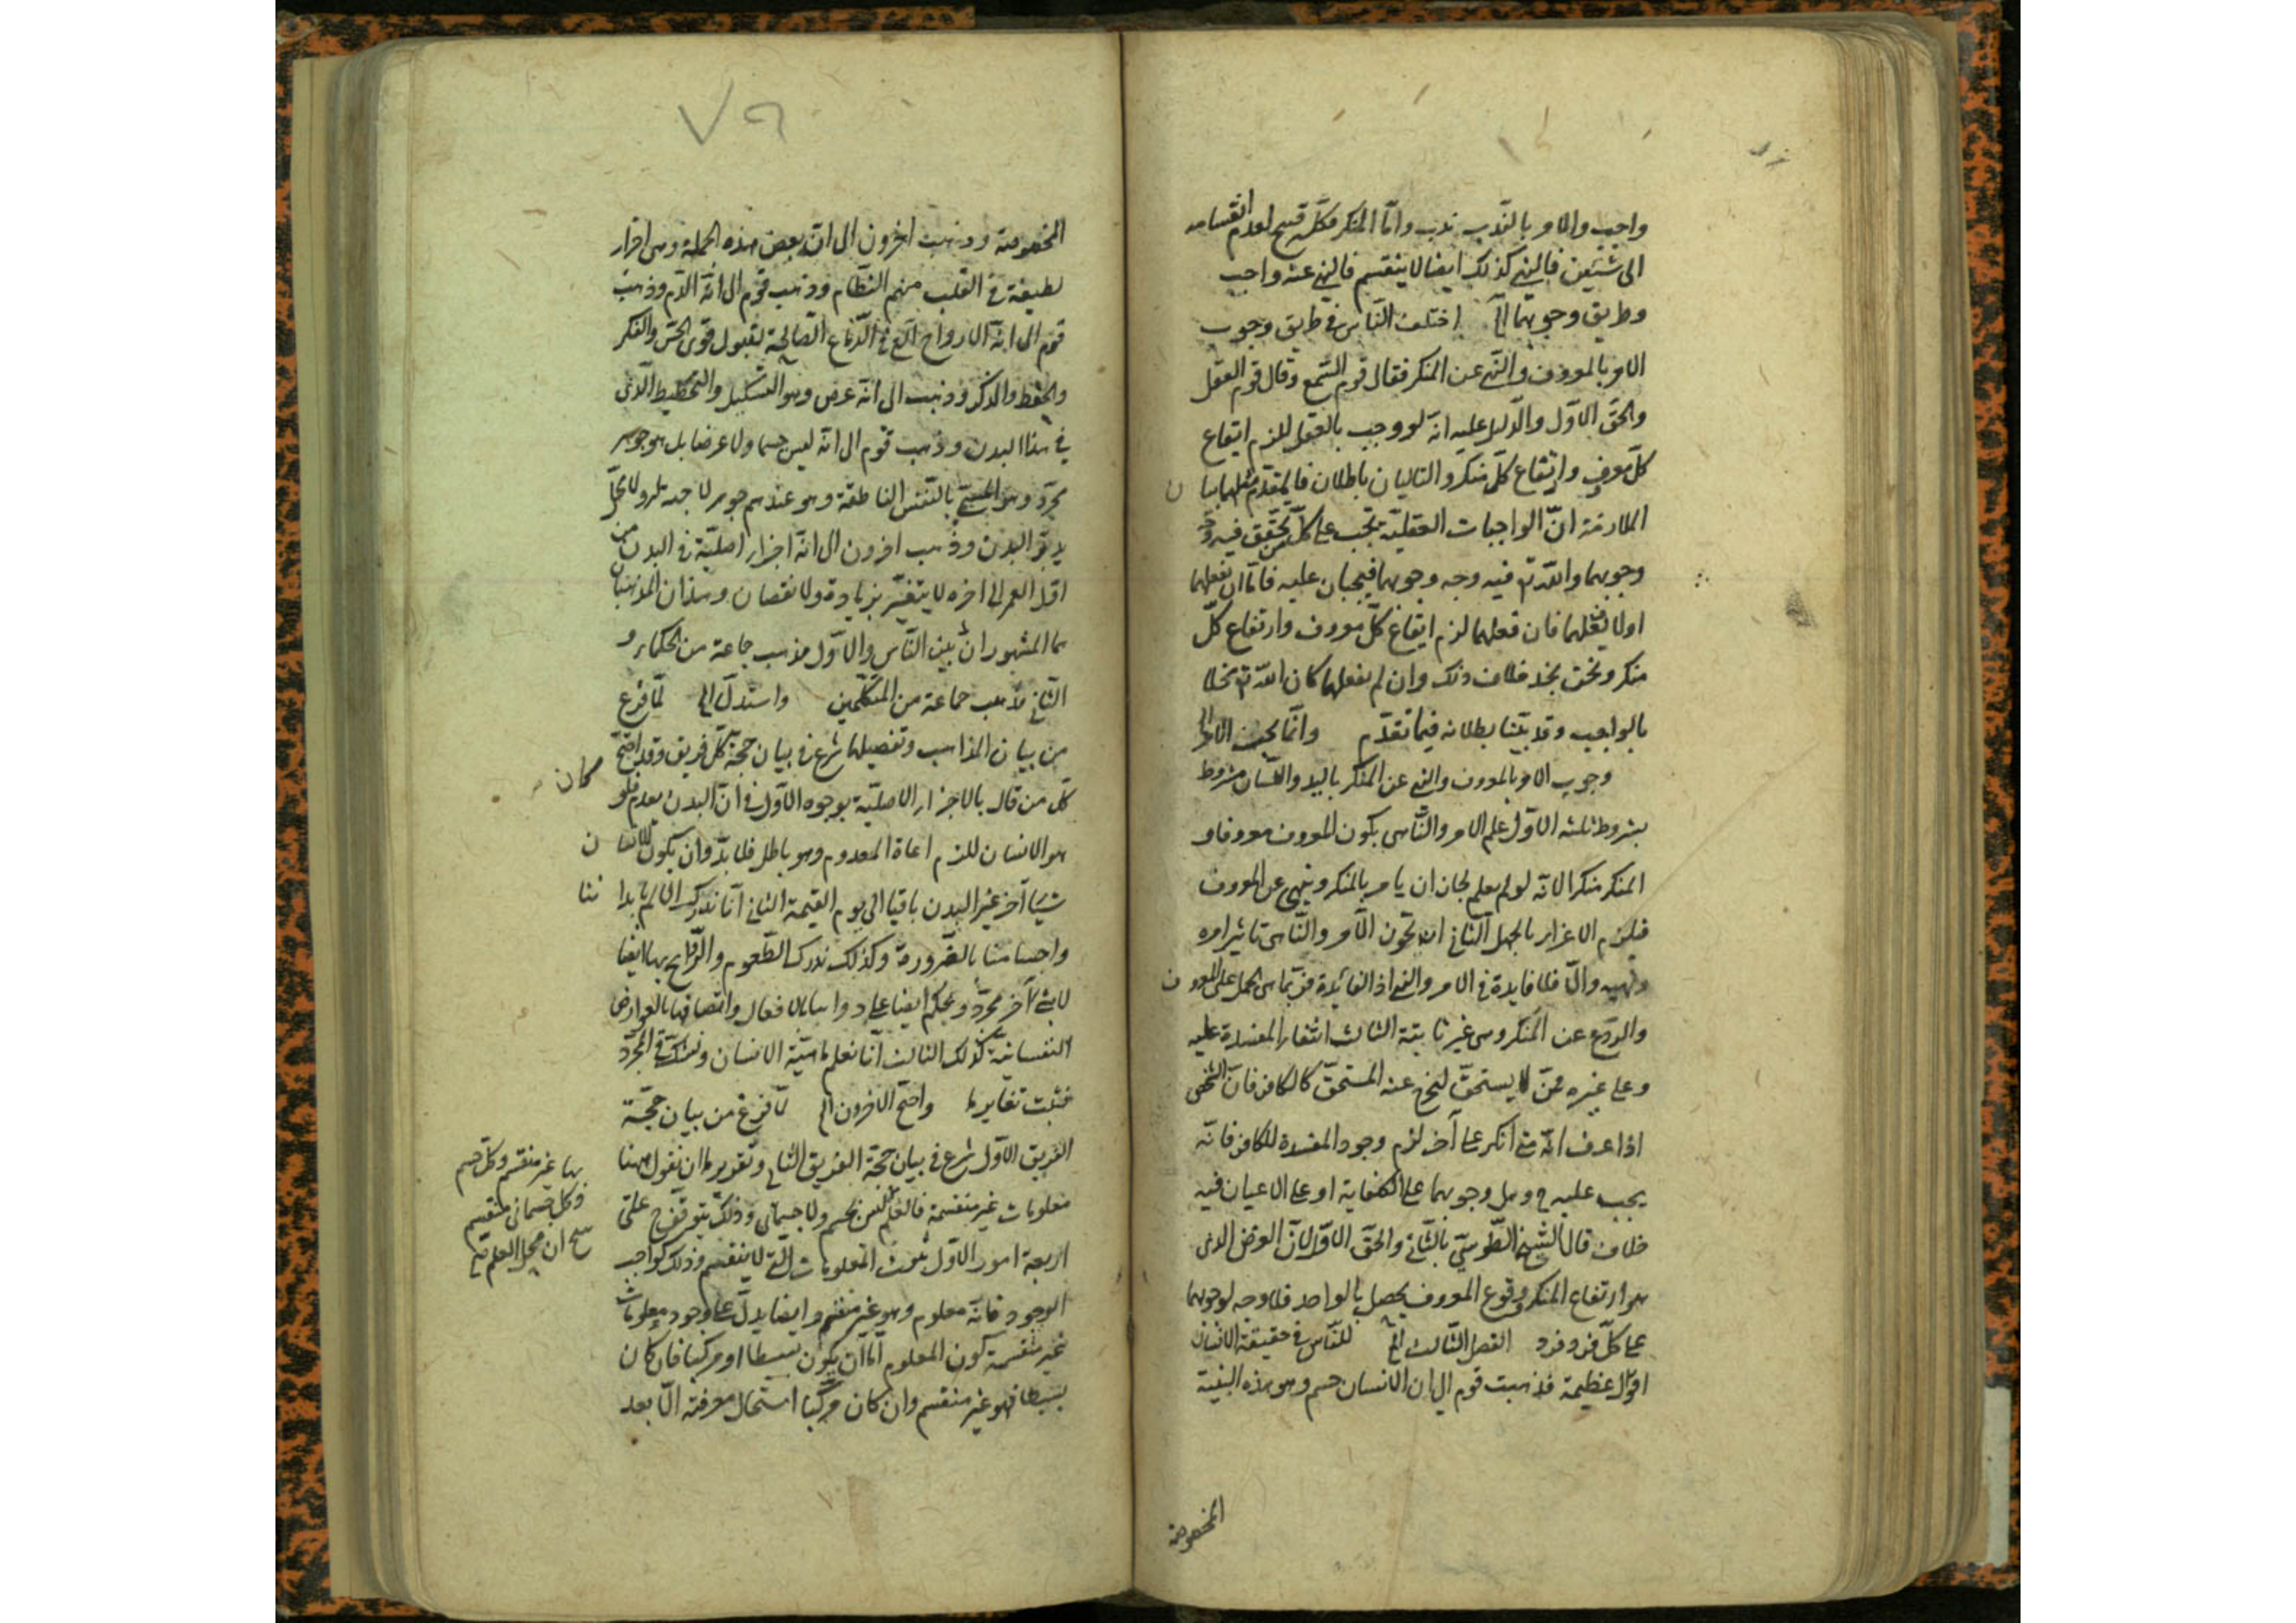 واجب والامر بالندب ندب واما المنكر فكله قبيح لعدم انقسامه
الى شيئين فالنهى كذلك ايضا لا ينقسم فالنهى عنه واجب
وطريق وجوبهما الخ اختلف الناس فى طريق وجوب
الامر بالمعروف والنهى عن المنكر فقال قوم السمع وقال قوم العقل
والحق الاول والدليل عليه انه لو وجب بالعقل للزم ايقاع
كل معروف وارتفاع كل منكر والتاليان باطلان فالمقدم مثلهما بيان
الملازمة ان الواجبات العقلية تجب على كل من تحقق فيه وجه
وجوبهما والله تع فيه وجه وجوبهما فيجبان عليه فاما ان يفعلهما
او لا يفعلهما فان فعلهما لزم ايقاع كل معروف وارتفاع كل
منكر ونحن نجد خلاف ذلك وان لم يفعلهما كان الله تع مخلا
بالواجب وقد بينا بطلانه فيما تقدم وانما يجب الامر الخ
وجوب الامر بالمعروف والنهى عن المنكر باليد واللسان مشروط
بشروط ثلثة الاول علم الامر والناهى بكون المعروف معروفا و
المنكر منكرا لانه لو لم يعلم لجاز ان يامر بالمنكر وينهى عن المعروف
فيلزم الاغراء بالجهل الثانى ان يجوز الآمر والناهى تاثير امره
ونهيه والا فلا فايدة فى الامر والنهى اذ الفائدة فيهما هى الحمل على المعروف
والردع عن المنكر وهى غير ثابتة الثالث انتفاء المفسدة عليه
وعلى غيره ممن لا يستحق ليخرج عنه المستحق كالكافر فان الشخص
اذا عرف انه متى انكر على آخر لزم وجود المفسدة للكافر فانه
يجب عليه ح وهل وجوبهما على الكفاية او على الاعيان فيه
خلاف قال الشيخ الطوسى بالثانى والحق الاول لان الغرض الذى
هو ارتفاع المنكر ووقوع المعروف يحصل بالواحد فلا وجه لوجوبهما
على كل فرد فرد الفصل الثالث الخ للناس فى حقيقة الانسان
اقوال عظيمة فذهبت قوم الى ان الانسان جسم وهو هذه البنية
المخصوصة
٧٩
المخصوصة وذهبت اخرون الى انه بعض هذه الجملة وهى اجزاء
لطيفة فى القلب منهم النظام وذهب قوم الى انه الدم وذهب
قوم الى انه الارواح التى فى الدماغ الصالحة لقبول قوى الحس والفكر
والحفظ والذكر وذهب الى انه عرض وهو التشكيل والتخطيط الذى
فى هذا البدن وذهب قوم الى انه ليس جسما ولا عرضا بل هو جوهر
مجرد وهو المسمى بالنفس الناطقة وهو عندهم جوهر لا جهة له ولا محل
يدبر البدن وذهب اخرون الى انه اجزاء اصلية فى البدن من
اول العمر الى اخره لا يتغير بزيادة ولا نقصان وهذان المذهبان
هما المشهوران بين الناس والاول مذهب جماعة من الحكماء و
الثانى مذهب جماعة من المتكلمين واستدل الخ لما فرغ
من بيان المذاهب وتفصيلها شرع فى بيان حجة كل فريق وقد احتج
كل من قال بالاجزاء الاصلية بوجوه الاول فى ان البدن يعدم فلو كان
هو الانسان للزم اعادة المعدوم وهو باطل فلا بد وان يكون الانسان
شيئا آخر غير البدن باقيا الى يوم القيمة الثانى انا ندرك الالم بابداننا
واجسامنا بالضرورة وكذلك ندرك الطعوم والروائح بها ايضا
لا بشئ آخر مجرد ونحكم ايضا على ذواتنا بالافعال واتصافها بالعوارض
النفسانية كذلك الثالث انا نعلم ماهية الانسان ونشك فى المجرد
فثبت تغايرهما واحتج الاخرون الخ لما فرغ من بيان حجة
الفريق الاول شرع فى بيان حجة الفريق الثانى وتقريرها ان نقول ههنا
معلومات غير منقسمة فالعلم بها غير منقسم وكل جسم
وكل جسمانى منقسم
ليس بجسم ولا جسمانى وذلك يتوقف على
اربعة امور الاول ثبوت المعلومات التى لا ينقسم وذلك كواجب
الوجود فانه معلوم وهو غير منقسم وايضا يدل على وجود معلومات
غير منقسمة كون المعلوم اما ان يكون بسيطا او مركبا فان كان
بسيطا فهو غير منقسم وان كان مركبا استحال معرفته الا بعد